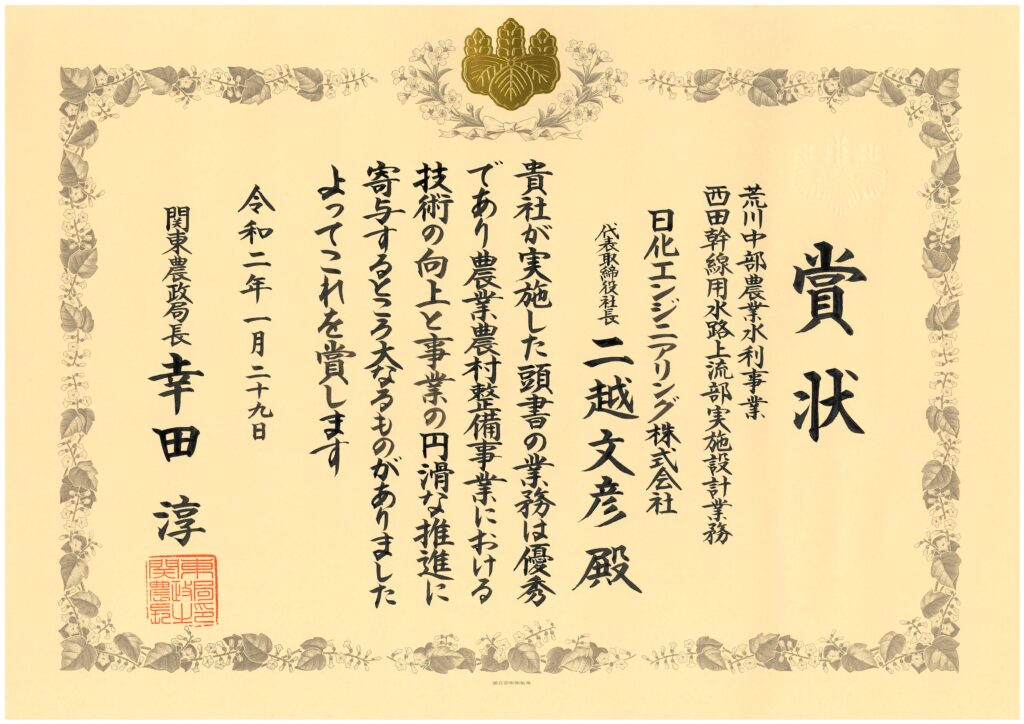 賞状
荒川中部農業水利事業
西田幹線用水路上流部実施設計業務
日化エンジニアリング株式会社
代表取締役社長 二越文彦殿
貴社が実施した頭書の業務は優秀
であり農業農村整備事業における
技術の向上と事業の円滑な推進に
寄与するところ大なるものがありました
よってこれを賞します
令和二年一月二十九日
関東農政局長 幸田淳